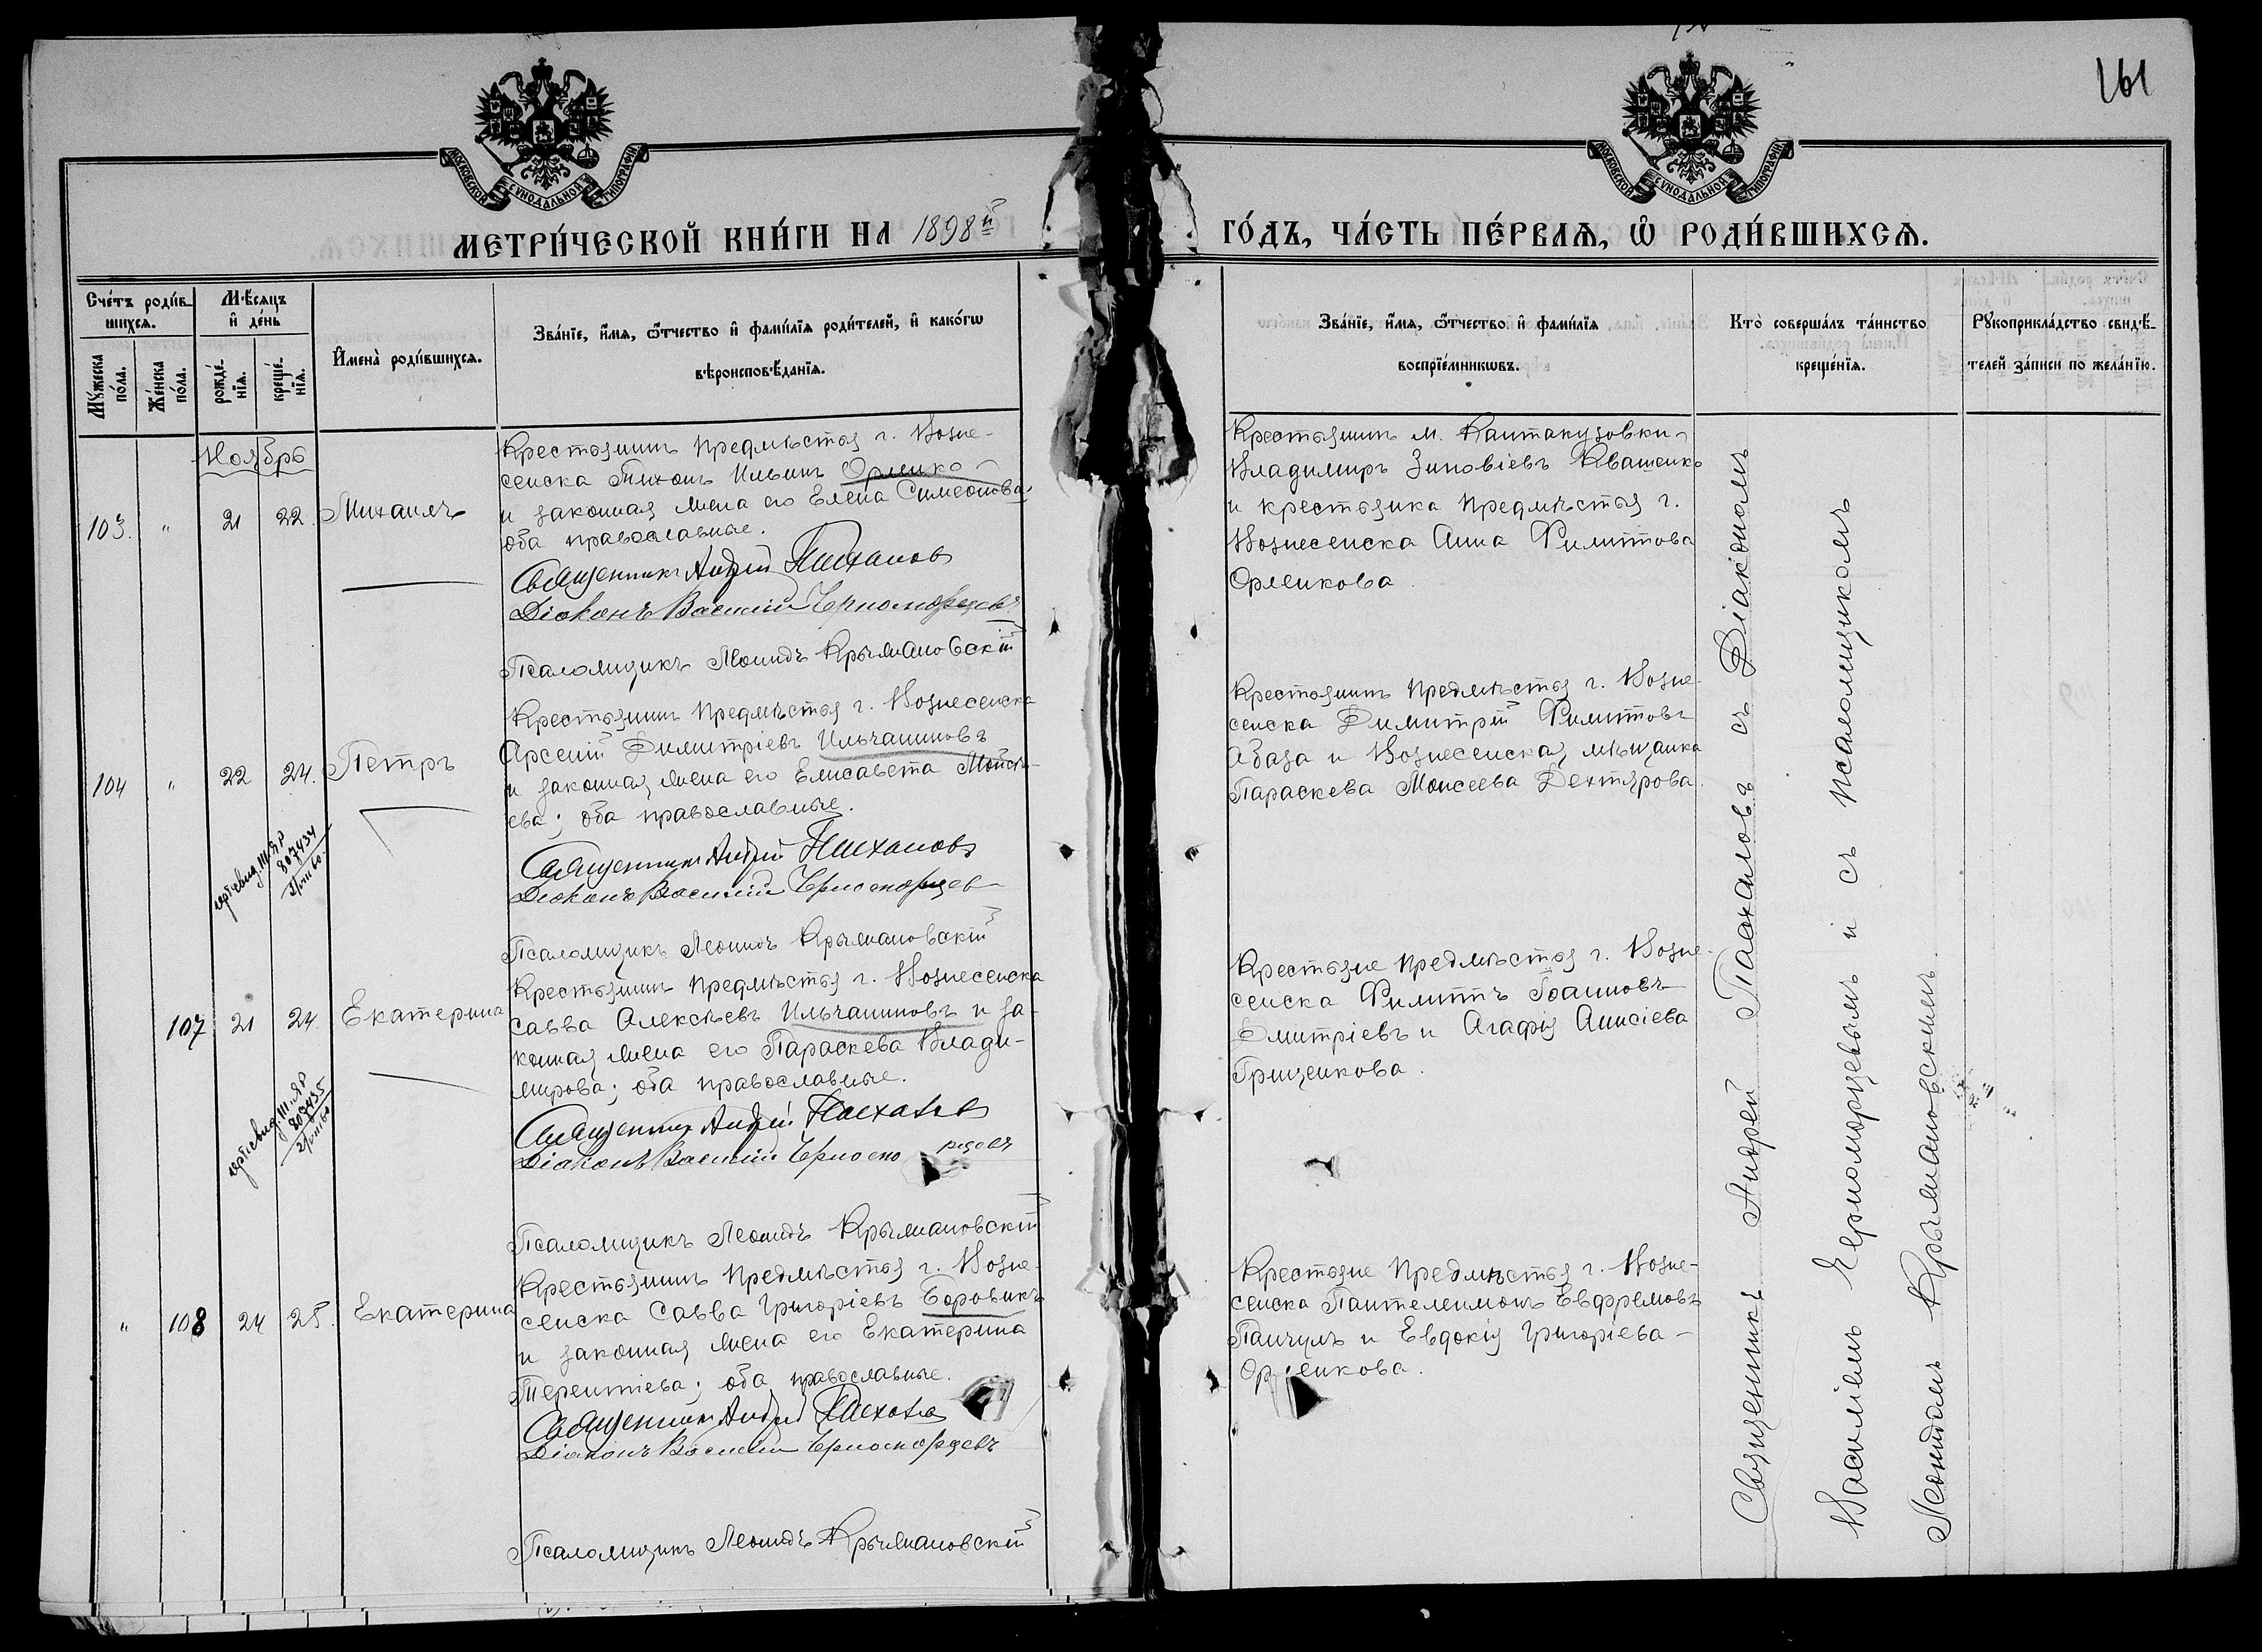 161
МОСКОВСКОЙ СѴНОДАЛЬНОЙ ТИПОГРАФІИ
МОСКОВСКОЙ СѴНОДАЛЬНОЙ ТИПОГРАФІИ
МЕТРИ́ЧЕСКОЙ КНИ́ГИ НА 1898й
ГО́ДЪ, ЧА́СТЬ ПЕ́РВАѦ, Ѡ҆ РОДИ́ВШИХСѦ.
Сче́тъ роди́в-
шихсѧ.
Мꙋ́жеска по́ла.
Же́нска по́ла.
Мѣ́сѧцъ
и҆ де́нь
рожде́-
нїѧ.
креще́-
нїѧ.
И҆мена̀ роди́вшихсѧ.
Зва́нїе, и҆́мѧ, ѻ҆́тчество и҆ фами́лїѧ роди́телей, и҆ како́гѡ
вѣроисповѣ́данїѧ.
Зва́нїе, и҆́мѧ, ѻ҆́тчество и҆ фами́лїѧ
воспрїе́мникѡвъ.
Кто̀ соверша́лъ та́инство
креще́нїѧ.
Рꙋкоприкла́дство свидѣ́-
телей за́писи по жела́нїю.
Ноябрь
103. " 21 22. Михаилъ
Крестьянинъ предмѣстья г. Возне-
сенска Тихонъ Ильинъ Орленко
и законная жена его Елена Симеонова
оба православные.
Священникъ Андрей Пасхаловъ
Діаконъ Василій Черноморцевъ
Псаломщикъ Леонидъ Крыжановскій
Крестьянинъ м. Кантакузовки
Владимиръ Зиновіевъ Квашенко
и крестьянка предмѣстья г.
Вознесенска Анна Филиппова
Орленкова
104 " 22 24. Петръ
Крестьянинъ предмѣстья г. Вознесенска
Арсеній Димитріевъ Ильчаниновъ
и законная жена его Елисавета Мойсе-
ева; оба православные.
Священникъ Андрей Пасхаловъ
Діаконъ Василій Черноморцев
Псаломщикъ Леонидъ Крыжановскій
807434
Крестьянинъ предмѣстья г. Возне-
сенска Димитрій Филипповъ
Абаза и Вознесенская мѣщанка
Параскева Моисеева Дехтярова.
107 21 24. Екатерина
Крестьянинъ предмѣстья г. Вознесенска
Савва Алексѣевъ Ильчаниновъ и за-
конная жена его Параскева Влади-
мирова; оба православные.
Священникъ Андрей Пасхалов
Діаконъ Василій Черномо рцевъ
Псаломщикъ Леонидъ Крыжановскій
807435
Крестьяне предмѣстья г. Возне-
сенска Филиппъ Іоанновъ
Дмитріевъ и Агафія Анисіева
Грищенкова.
" 108 24 25. Екатерина
Крестьянинъ предмѣстья г. Возне-
сенска Савва Григоріевъ Боровикъ
и законная жена его Екатерина
Терентіева; оба православные.
Священникъ Андрей Пасхалов
Діаконъ Василій Черноморцевъ
Псаломщикъ Леонидъ Крыжановскій
Крестьяне предмѣстья г. Возне-
сенска Пантелеимонъ Евфремовъ
Панчулъ и Евдокія Григоріева
Орленкова.
Священникъ Андрей Пасхаловъ съ Діакономъ
Василіемъ Черноморцевымъ и съ псаломщикомъ
Леонидомъ Крыжановскимъ.